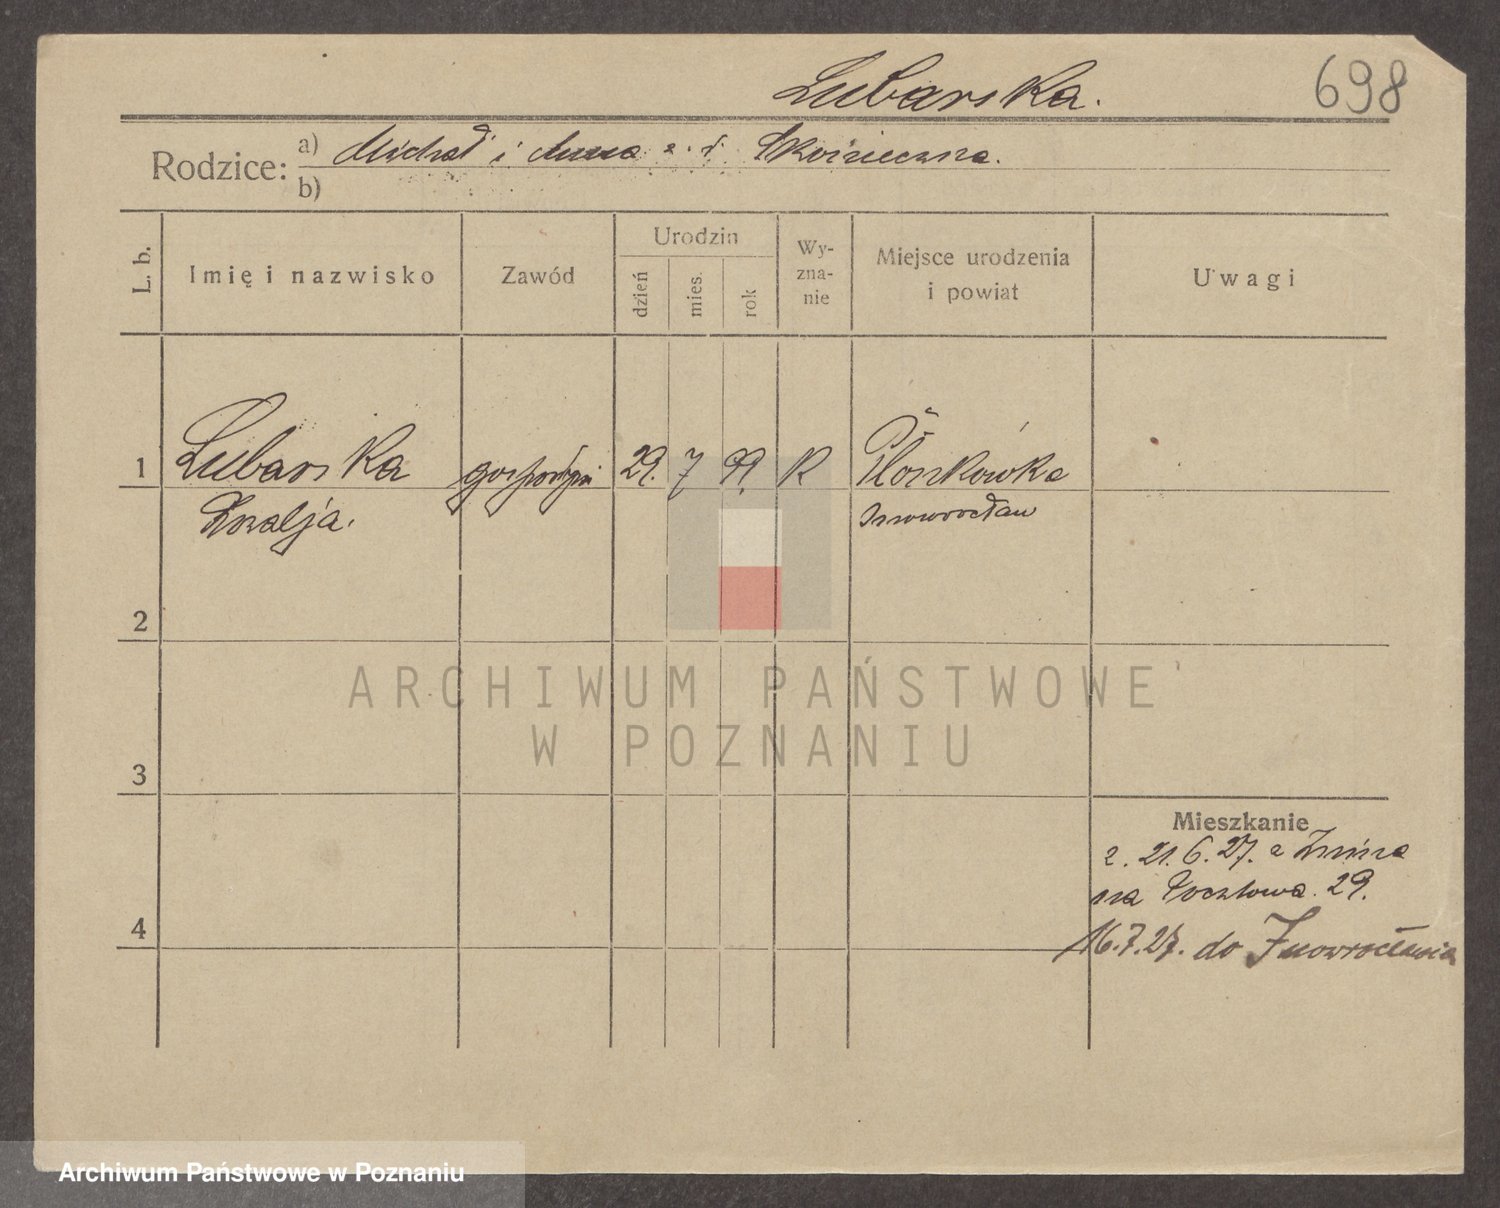 Lubarska.
698
Rodzice:
a) Michał i Anna z. d.
b)
L. b.
Imię i nazwisko
Zawód
Urodzin
dzień
mies.
rok
Wy-
zna-
nie
Miejsce urodzenia
i powiat
Uwagi
1
Lubarska
gospodyni
29. 7 99. K
Płonkówko
Inowrocław
2
3
4
Mieszkanie
z. 21. 6. 27. z Żnina
na Pocztowa. 29.
16. 7. 27. do Inowrocławia
ARCHIWUM PAŃSTWOWE
W POZNANIU
Archiwum Państwowe w Poznaniu